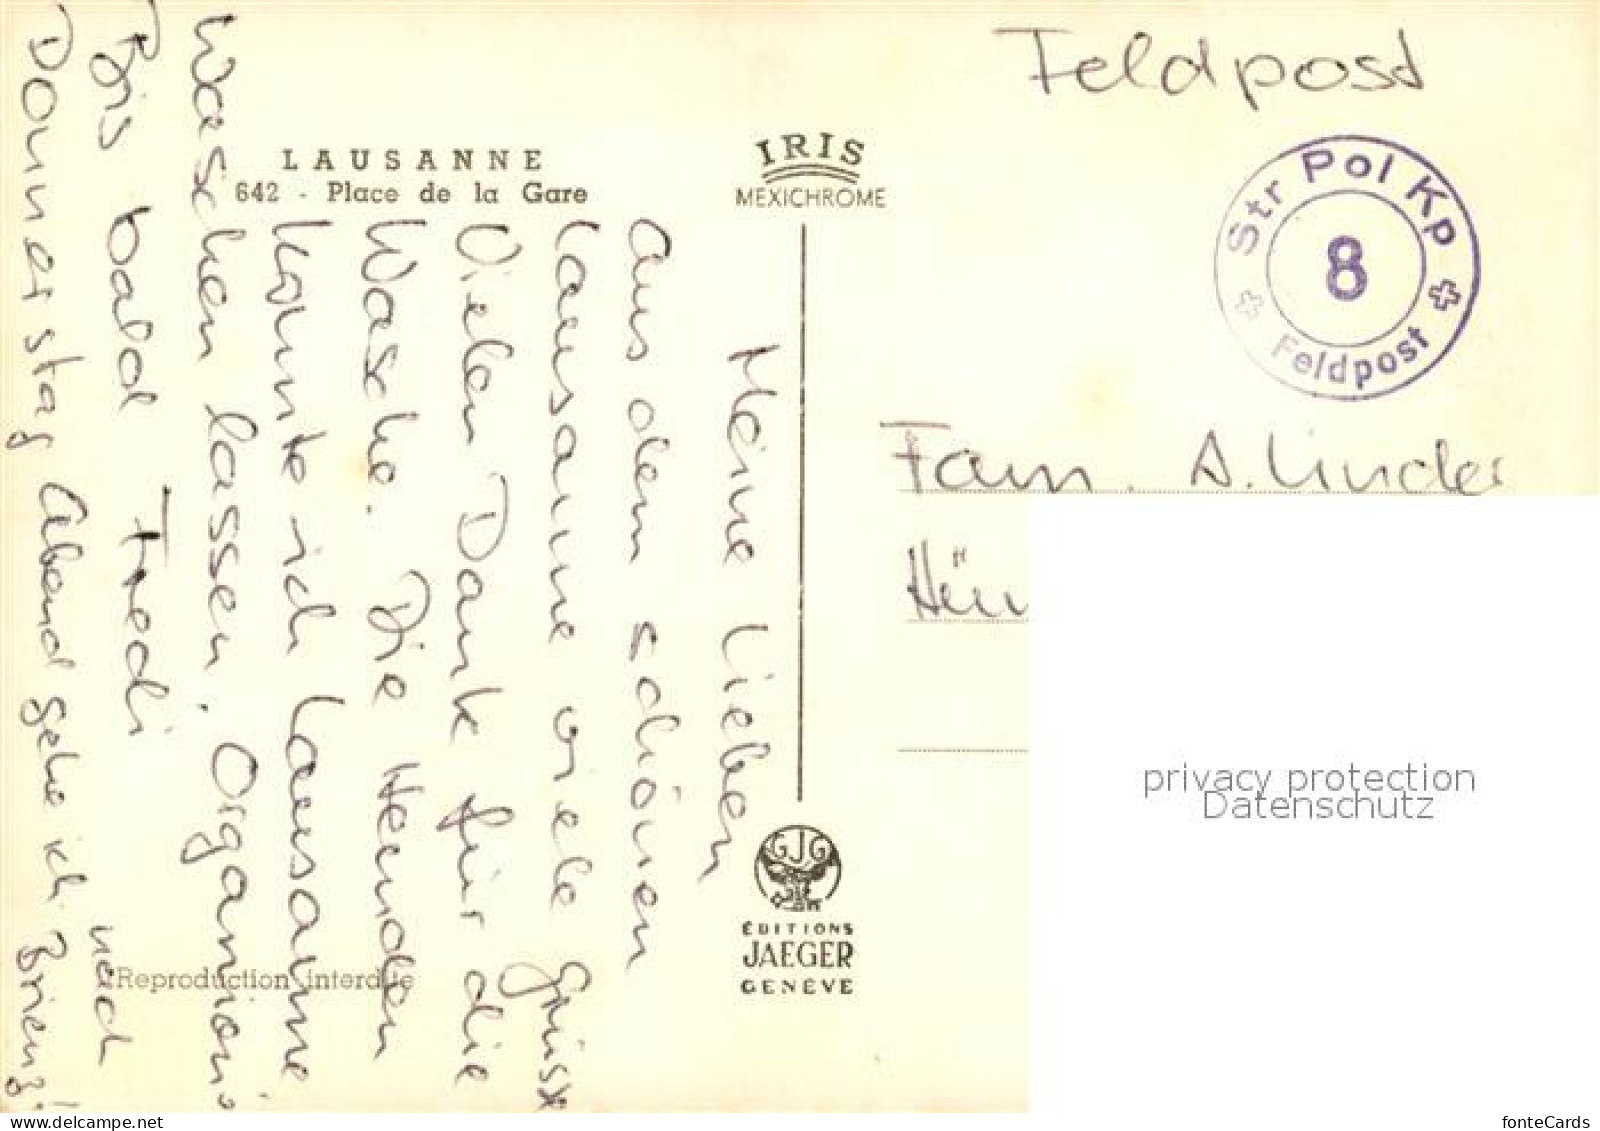 Feldpost
LAUSANNE
642 - Place de la Gare
IRIS
MEXICHROME
Str Pol Kp
8
Feldpost
Fam. A. Linder
Meine Lieben
Aus dem schönen
Lausanne viele Grüsse
Vielen Dank für die
Wäsche. Die Hemden
konnte ich Lausanne
waschen lassen.
Bis bald Fredi
Donnerstag Abend gehe ich
nach
Brienz!
Reproduction interdite
GJG
ÉDITIONS
JAEGER
GENÈVE
privacy protection
Datenschutz
www.delcampe.net
fonteCards